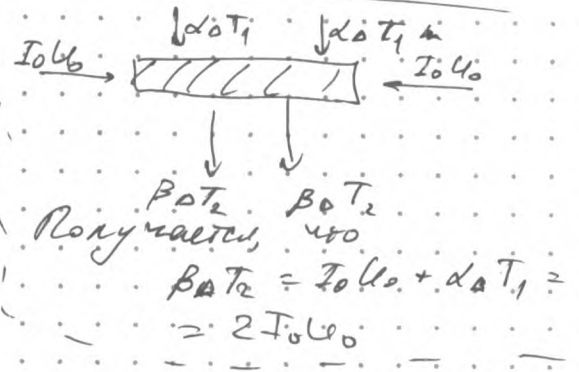 ↓αΔT₁ ↓αΔT₁
I₀U₀ → ← I₀U₀
βΔT₂ βΔT₂
Получается, что
βΔT₂ = I₀U₀ + αΔT₁ =
= 2I₀U₀